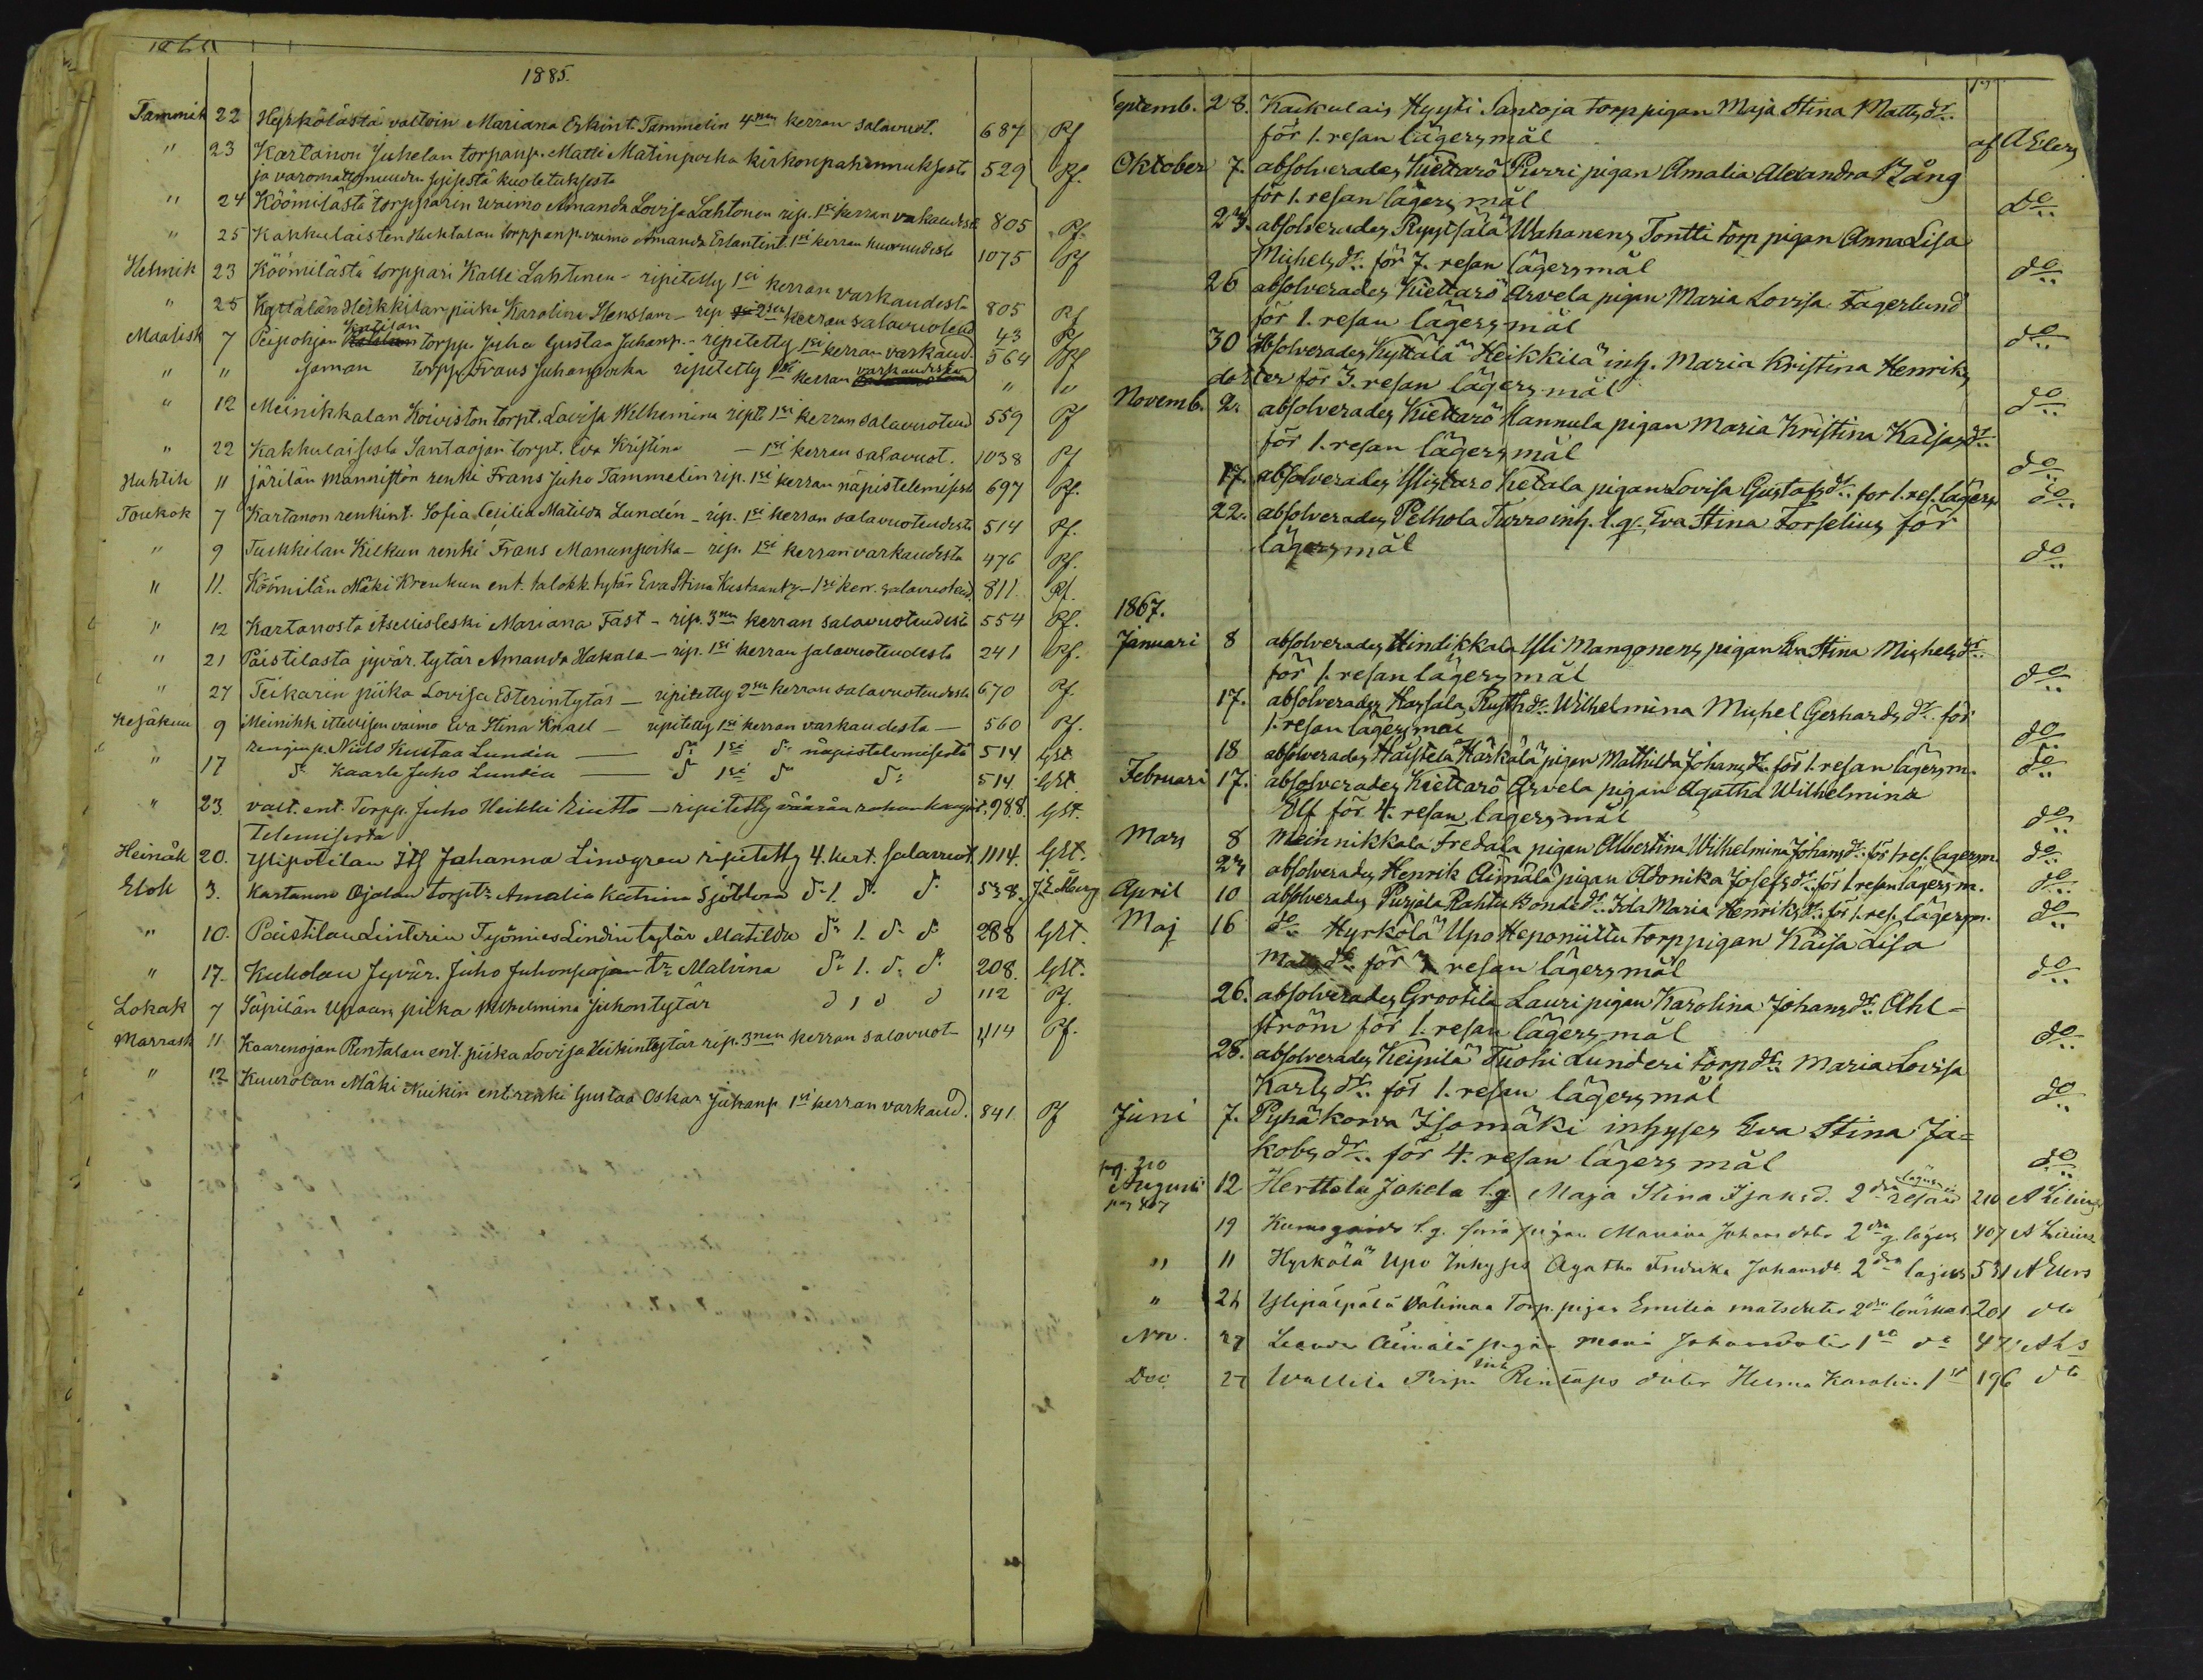 1885.
Tammik 22 Hyrkölästä valtoin Mariana Erkint. Tammelin 4nen kerran salavuot. 687 Pf
" 23 Kartanon Juhelan torpanp. Matti Matinpoika kirkonpahennuksesta 529 Pf.
ja varomattomuuden syisestä kuoletuksesta
" 24 Köömilästä torpparin waimo Amanda Lovisa Lahtonen rip. 1si kerran varkaudest. 805 Pf.
" 25 Kakkulaisten Huhtalan torppanp. vaimo Amanda Erlantint. 1si kerran huoruudesta 1075 Pf
Helmik 23 Köömilästä torppari Kalle Lahtinen - ripitetty 1si kerran varkaudesta 805 Pf
" 25 Kyttälän Heikkilan piika Karolina Henslam - rip 2sen kerran salavuoteud 43 Pf
Maalisk 7 Peipohjan torpp. Juha Gustaa Juhanp. - ripitetty 1si kerran varkaud. 564 Pf
" " saman torpp. Frans Juhanpoika ripitetty 1si kerran varkaudesta " "
" 12 Meinikkalan Koiviston torpt. Lovisa Wilhemina ript. 1si kerran salavuoteud 559 Pf
" 22 Kakkulaisista Santaojan torpt. Eva Kristina - 1si kerran salavuot. 1038 Pf
Huhtik 11 järilän Männistön renki Frans Juho Tammelin rip. 1si kerran näpistelemisestä 697 Pf.
Toukok 7 Kartanon renkint. Sofia Cesilia Matilda Lundén - rip. 1si kerran salavuoteudesta 514 Pf.
" 9 Tuskkilan Kilkun renki Frans Manunpoika - rip. 1si kerran varkaudesta 476 Pf.
" 11. Köömilän Mäki Krenkun ent. talokk. tytär Eva Stina Kustaanty - 1si kerr. salavuoteud. 811. Pf.
" 12 Kartanosta itsellisleski Mariana Fast - rip. 3nen kerran salavuoteudesta 554 Pf.
" 21 Päistilasta jyvär. tytär Amanda Hakala - rip. 1si kerran salavuoteudesta 241 Pf.
" 27 Teikarin piika Lovisa Esterintytär - ripitetty 2sen kerran salavuoteudesta 670 Pf.
Kesäkuu 9 Meinikk ittellisen vaimo Eva Stina Knall - ripitetty 1si kerran varkaudesta - 560 Pf.
renginp. Niilo Kustaa Lundén - do 1si do näpistelemisestä 514 GSt
" 17 do Kaarle Juho Lundén - do 1si do do 514 GSt.
" 23. valt. ent. Torpp. Juho Heikki - ripitetty väärän rahan 988. GSt.
telemisesta
Heinäk 20. Ylipotilan Its Johanna Lindgren ripitetty 4. kert. salavuot. 1114. GSt.
Elok 3. Kartanon Ojalan torptr Amalia Katrina do 1. do do 538.
" 10. Päistilan Työmies Lindin tytär Matilda do 1. do do 288 GSt.
" 17. Kukolan Jyvär. Juho Juhonpojan tr. Malvina do 1. do do 208. GSt.
Lokak 7 Säpilän Upaan piika Wilhelmina Juhontytär do 1 do do 112 Pf.
Marrask 11 Kaarenojan Rintalan ent. piika Lovisa Heikintytär rip. 3nen kerran salavuot 1114 Pf.
" 12 Kuurolan Mäki Nuikin ent. renki Gustaa Oskar Juhanp 1si kerran varkaud. 841. Pf
Septemb. 28. Kakkulais Hyyti Santoja torp pigan Maja Stina Mattsdr.
för 1. resan lägersmål af A Elers
Oktober 7. absolverades Kiettarö Purri pigan Amalia Alexandra Zång
för 1. resan lägersmål do
23. absolverades Ryytsälä Wahanens Tontti torp pigan Anna Lisa
Michelsdr. för 7. resan lägersmål do
26 absolverades Kiettarö Arvela pigan Maria Lovisa Fagerlund
för 1. resan lägersmål do
30 absolverades Kyttälä Heikkilä inh. Maria Kristina Henriks
dotter för 3. resan lägersmål do
Novemb. 2. absolverades Kiettarö Hannula pigan Maria Kristina Kaisasdr.
för 1. resan lägersmål do
17. absolverades Ylistaro Kietala pigan Lovisa Gustafsdr. for 1. res. lägers do
22. absolverades Pelhola Turro inh. l.q. Eva Stina Forselius för
lägersmål do
1867.
Januari 8 absolverades Hindikkala Yli Mangonens pigan Eva Stina Michelsdr.
för 1. resan lägersmål do
17. absolverades Haysala Rusthdr. Wilhelmina Michel Gerhardsdr. för
1. resan lägersmål do
18 absolverades Häistelä Härkälä pigan Mathilda Johansdr. för 1. resan lägersm. do
Februari 17. absolverades Kiettarö Arvela pigan Agatha Wilhelmina
Elf för 4. resan lägersmål do
Mars 8 Meinnikkala Fredala pigan Albertina Wilhelmina Johansdr. för 1 res. lagersm. do
23 absolverades Henrik Äimälä pigan Adonika Josefsdr. för 1 resan lagersm. do
April 10 absolverades Purjala Rahtu Bondedr. Ida Maria Henriksdr. för 1. res. lägersm. do
Maj 16 do Hyrkölä Upo Heponiittu torp pigan Kaisa Lisa
Mattsdr. för resan lägersmål do
26. absolverades Grootila Lauri pigan Karolina Johansdr. Ahl=
ström för 1. resan lägersmål do
28. absolverades Keipilä Tuohi Lunderi torpdr. Maria Lovisa
Karlsdr. för 1. resan lägersmål do
Juni 7. Pyhäkorva Isomäki inhyses Eva Stina Ja=
kobsdr. för 4. resan lägersmål do
pag. 210
Augusti 12 Herttola Jakela l.q. Maja Stina Isaksd. 2dra resan 210 A Lilius
pag 407
19 l.q. pigan Mariana Johansdotr 2dra g. lägers 407 A Lilius
" 11 Hyrkölä Upo Inhyses Agatha Fredrika Johansdr. 2dra lägers 531 A Elers
" 24 Ylipääpälä Välimaa Torp. pigan Emilia matsdoter 2dra 201 dto
Nov. 27 Äimälä pigan Maria Johansdoter 1sta do 471
Dec. 27 Wallila doter Helma Karolin 1sta 196 dto